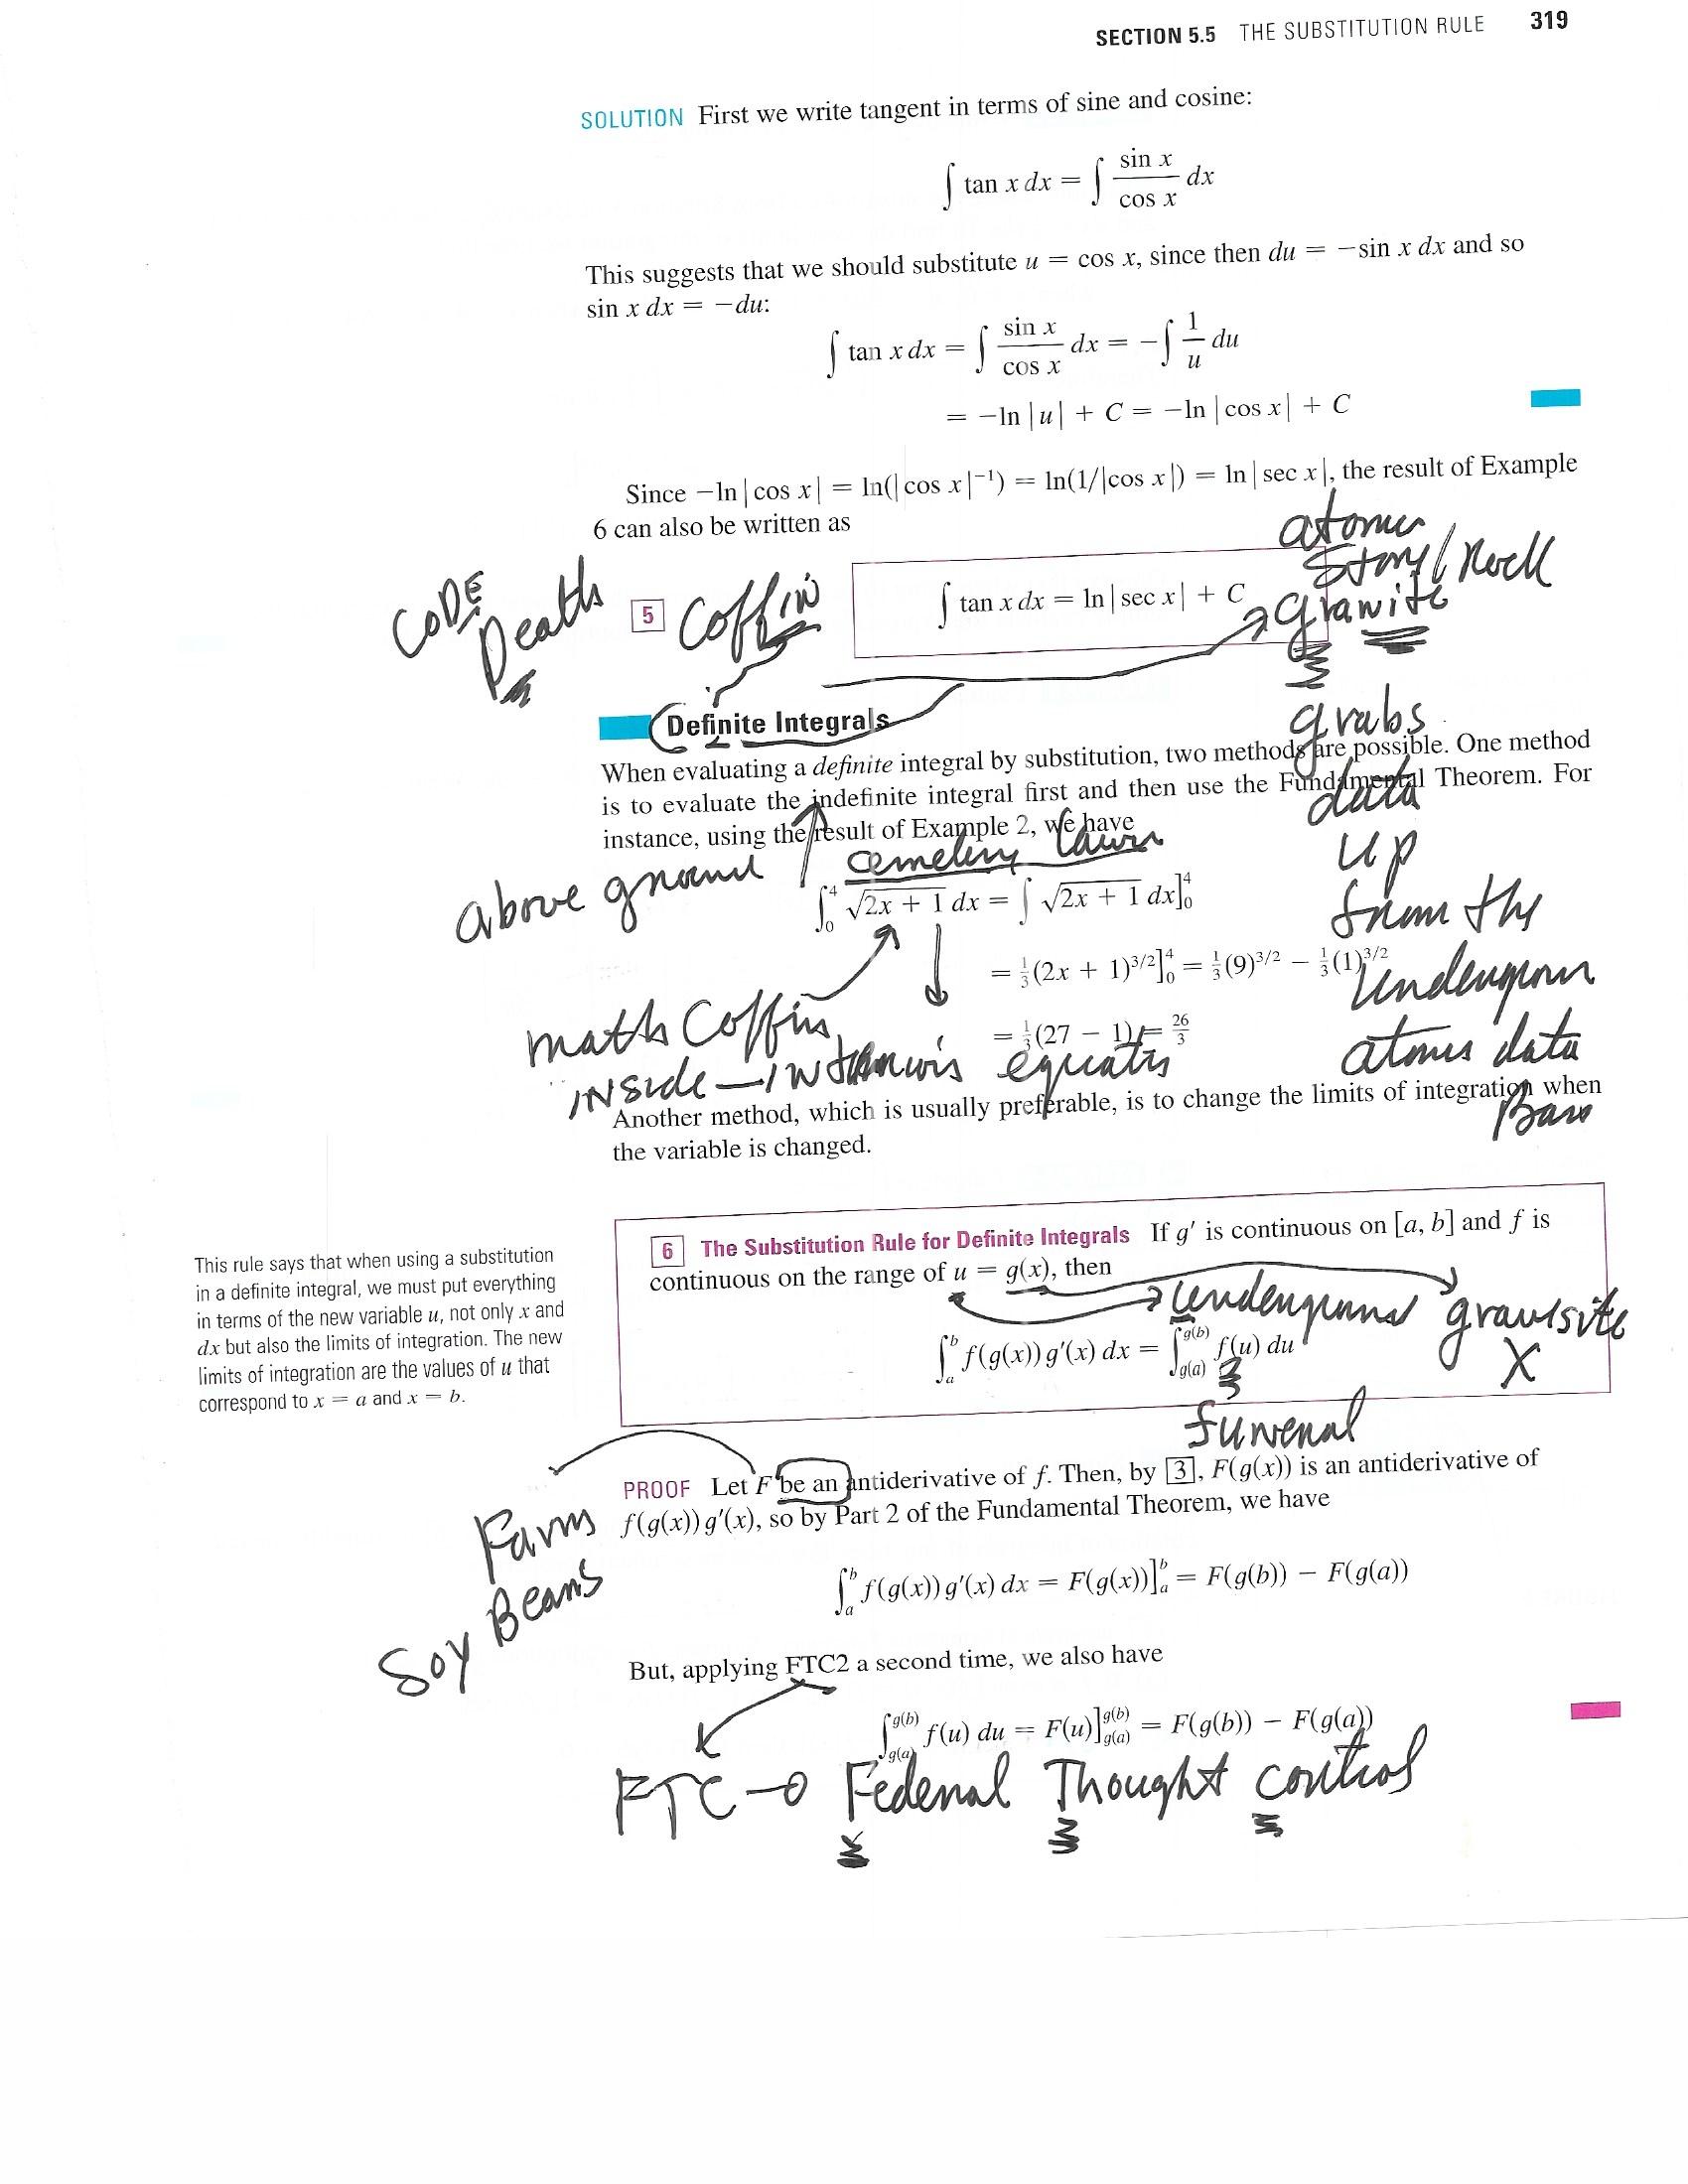 SECTION 5.5 THE SUBSTITUTION RULE 319
SOLUTION First we write tangent in terms of sine and cosine:
∫ tan x dx = ∫ sin x / cos x dx
This suggests that we should substitute u = cos x, since then du = −sin x dx and so
sin x dx = −du:
∫ tan x dx = ∫ sin x / cos x dx = −∫ 1/u du
= −ln |u| + C = −ln |cos x| + C
Since −ln |cos x| = ln(|cos x|⁻¹) = ln(1/|cos x|) = ln |sec x|, the result of Example
6 can also be written as
atomic
Story/Rock
granite
CODE
Deaths
5 Coffin
∫ tan x dx = ln |sec x| + C
Definite Integrals
grabs
data
up
from the
undergroun
atomis data
Bass
When evaluating a definite integral by substitution, two methods are possible. One method
is to evaluate the indefinite integral first and then use the Fundamental Theorem. For
instance, using the result of Example 2, we have
above ground
cemetery lawn
∫₀⁴ √(2x + 1) dx = ∫ √(2x + 1) dx]₀⁴
= ⅓(2x + 1)^3/2]₀⁴ = ⅓(9)^3/2 − ⅓(1)^3/2
= ⅓(27 − 1) = 26/3
math Coffin
INside
Another method, which is usually preferable, is to change the limits of integration when
the variable is changed.
This rule says that when using a substitution
in a definite integral, we must put everything
in terms of the new variable u, not only x and
dx but also the limits of integration. The new
limits of integration are the values of u that
correspond to x = a and x = b.
6 The Substitution Rule for Definite Integrals If g′ is continuous on [a, b] and f is
continuous on the range of u = g(x), then
underground gravisite
X
∫ₐᵇ f(g(x)) g′(x) dx = ∫_g(a)^g(b) f(u) du
funeral
PROOF Let F be an antiderivative of f. Then, by 3, F(g(x)) is an antiderivative of
f(g(x)) g′(x), so by Part 2 of the Fundamental Theorem, we have
Farms
Soy Beans
∫ₐᵇ f(g(x)) g′(x) dx = F(g(x))]ₐᵇ = F(g(b)) − F(g(a))
But, applying FTC2 a second time, we also have
∫_g(a)^g(b) f(u) du = F(u)]_g(a)^g(b) = F(g(b)) − F(g(a))
FTC Federal Thought control